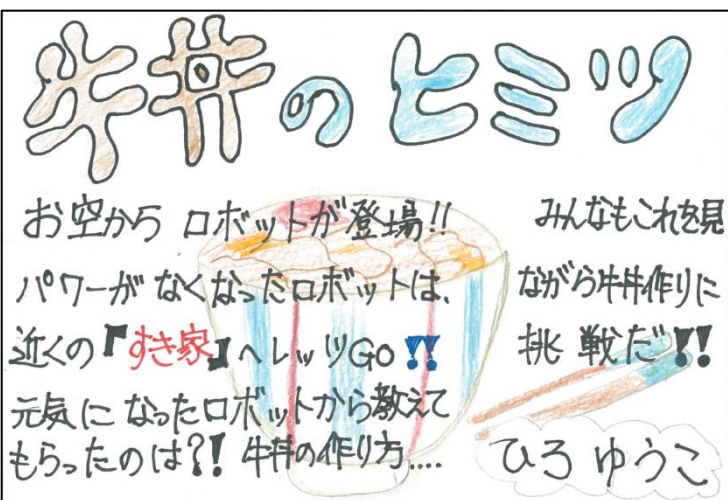 牛丼のヒミツ
お空から ロボットが登場!!
パワーが なくなったロボットは、
近くの『すき家』へレッツGO!!
元気に なったロボットから教えて
もらったのは?! 牛丼の作り方....
みんなもこれを見
ながら牛丼作りに
挑戦だ!!
ひろ ゆうこ